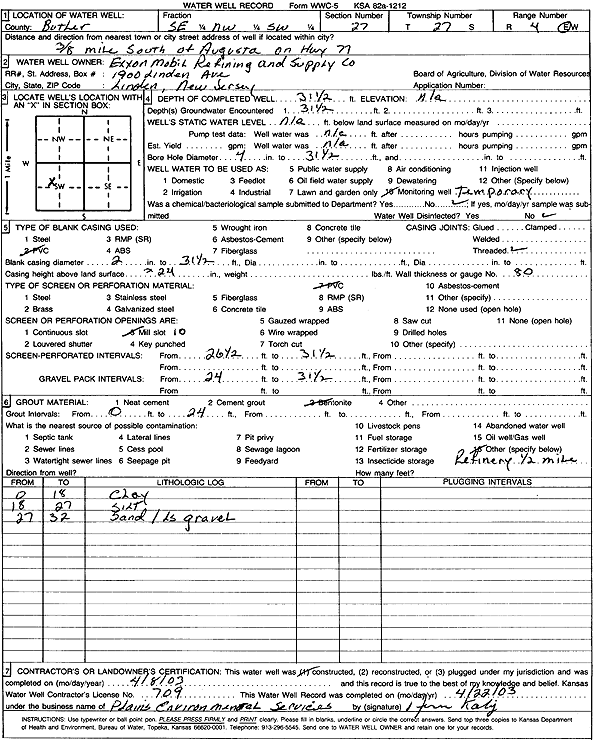 WATER WELL RECORD Form WWC-5 KSA 82a-1212
1 LOCATION OF WATER WELL: Fraction Section Number Township Number Range Number
County: Butler SE ¼ NW ¼ SW ¼ 27 T 27 S R 4 E/W
Distance and direction from nearest town or city street address of well if located within city?
3/8 mile South of Augusta on Hwy 77
2 WATER WELL OWNER: Exxon Mobil Refining and Supply Co
RR#, St. Address, Box # : 1900 Linden Ave Board of Agriculture, Division of Water Resources
City, State, ZIP Code : Linden, New Jersey Application Number:
3 LOCATE WELL'S LOCATION WITH AN "X" IN SECTION BOX:
N
NW NE
W E
X SW SE
S
1 Mile
4 DEPTH OF COMPLETED WELL 31½ ft. ELEVATION: n/a
Depth(s) Groundwater Encountered 1. 31½ ft. 2. ft. 3. ft.
WELL'S STATIC WATER LEVEL n/a ft. below land surface measured on mo/day/yr
Pump test data: Well water was n/a ft. after hours pumping gpm
Est. Yield gpm: Well water was n/a ft. after hours pumping gpm
Bore Hole Diameter 4 in. to 31½ ft., and in. to ft.
WELL WATER TO BE USED AS: 5 Public water supply 8 Air conditioning 11 Injection well
1 Domestic 3 Feedlot 6 Oil field water supply 9 Dewatering 12 Other (Specify below)
2 Irrigation 4 Industrial 7 Lawn and garden only 10 Monitoring well temporary
Was a chemical/bacteriological sample submitted to Department? Yes No ✓; If yes, mo/day/yr sample was submitted Water Well Disinfected? Yes No ✓
5 TYPE OF BLANK CASING USED: 5 Wrought iron 8 Concrete tile CASING JOINTS: Glued Clamped
1 Steel 3 RMP (SR) 6 Asbestos-Cement 9 Other (specify below) Welded
2 PVC 4 ABS 7 Fiberglass Threaded ✓
Blank casing diameter 2 in. to 31½ ft., Dia in. to ft., Dia in. to ft.
Casing height above land surface 24 in., weight lbs./ft. Wall thickness or gauge No. 80
TYPE OF SCREEN OR PERFORATION MATERIAL: 7 PVC 10 Asbestos-cement
1 Steel 3 Stainless steel 5 Fiberglass 8 RMP (SR) 11 Other (specify)
2 Brass 4 Galvanized steel 6 Concrete tile 9 ABS 12 None used (open hole)
SCREEN OR PERFORATION OPENINGS ARE: 5 Gauzed wrapped 8 Saw cut 11 None (open hole)
1 Continuous slot 3 Mill slot 10 6 Wire wrapped 9 Drilled holes
2 Louvered shutter 4 Key punched 7 Torch cut 10 Other (specify)
SCREEN-PERFORATED INTERVALS: From 26½ ft. to 31½ ft., From ft. to ft.
From ft. to ft., From ft. to ft.
GRAVEL PACK INTERVALS: From 24 ft. to 31½ ft., From ft. to ft.
From ft. to ft., From ft. to ft.
6 GROUT MATERIAL: 1 Neat cement 2 Cement grout 3 Bentonite 4 Other
Grout Intervals: From 0 ft. to 24 ft., From ft. to ft., From ft. to ft.
What is the nearest source of possible contamination: 10 Livestock pens 14 Abandoned water well
1 Septic tank 4 Lateral lines 7 Pit privy 11 Fuel storage 15 Oil well/Gas well
2 Sewer lines 5 Cess pool 8 Sewage lagoon 12 Fertilizer storage 16 Other (specify below)
3 Watertight sewer lines 6 Seepage pit 9 Feedyard 13 Insecticide storage Refinery ½ mile
Direction from well? How many feet?
FROM TO LITHOLOGIC LOG FROM TO PLUGGING INTERVALS
0 18 Clay
18 27 Silt
27 32 Sand / ls gravel
7 CONTRACTOR'S OR LANDOWNER'S CERTIFICATION: This water well was (1) constructed, (2) reconstructed, or (3) plugged under my jurisdiction and was
completed on (mo/day/year) 4/8/03 and this record is true to the best of my knowledge and belief. Kansas
Water Well Contractor's License No. 709 This Water Well Record was completed on (mo/day/yr) 4/22/03
under the business name of Plains Environmental Services by (signature)
INSTRUCTIONS: Use typewriter or ball point pen. PLEASE PRESS FIRMLY and PRINT clearly. Please fill in blanks, underline or circle the correct answers. Send top three copies to Kansas Department
of Health and Environment, Bureau of Water, Topeka, Kansas 66620-0001. Telephone: 913-296-5545. Send one to WATER WELL OWNER and retain one for your records.